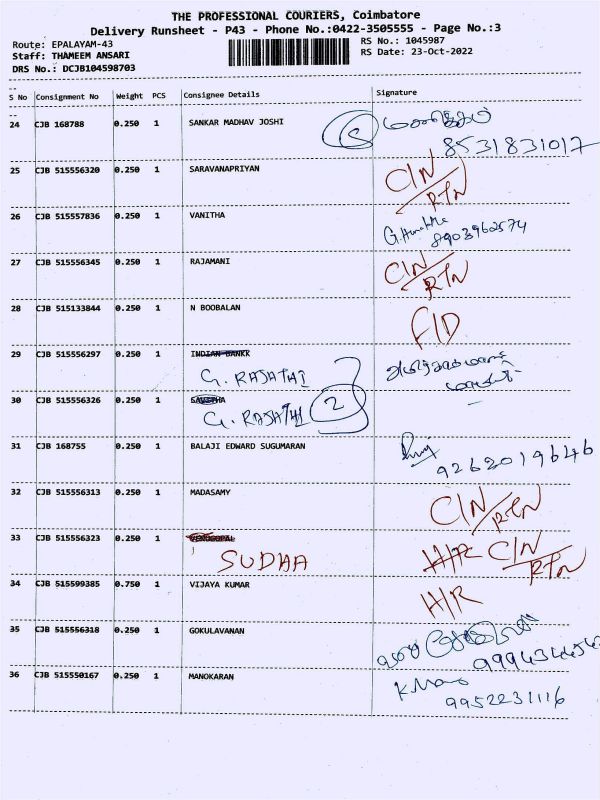 THE PROFESSIONAL COURIERS, Coimbatore
Delivery Runsheet - P43 - Phone No.:0422-3505555 - Page No.:3
Route: EPALAYAM-43 RS No.: 1045987
Staff: THAMEEM ANSARI RS Date: 23-Oct-2022
DRS No.: DCJB104598703
S No Consignment No Weight PCS Consignee Details Signature
24 CJB 168788 0.250 1 SANKAR MADHAV JOSHI
8531831017
25 CJB 515556320 0.250 1 SARAVANAPRIYAN C/N
RTN
26 CJB 515557836 0.250 1 VANITHA
8903962574
27 CJB 515556345 0.250 1 RAJAMANI C/N
RTN
28 CJB 515133844 0.250 1 N BOOBALAN F/D
29 CJB 515556297 0.250 1 INDIAN BANKK
G. RAJATHI
30 CJB 515556326 0.250 1 SAVITHA
G. RAJATHI 2
31 CJB 168755 0.250 1 BALAJI EDWARD SUGUMARAN
9262019646
32 CJB 515556313 0.250 1 MADASAMY C/N
RTN
33 CJB 515556323 0.250 1 VENUGOPAL
SUDHA H/R C/N
RTN
34 CJB 515599385 0.750 1 VIJAYA KUMAR
H/R
35 CJB 515556318 0.250 1 GOKULAVANAN
36 CJB 515550167 0.250 1 MANOKARAN K. Mano
9952231116